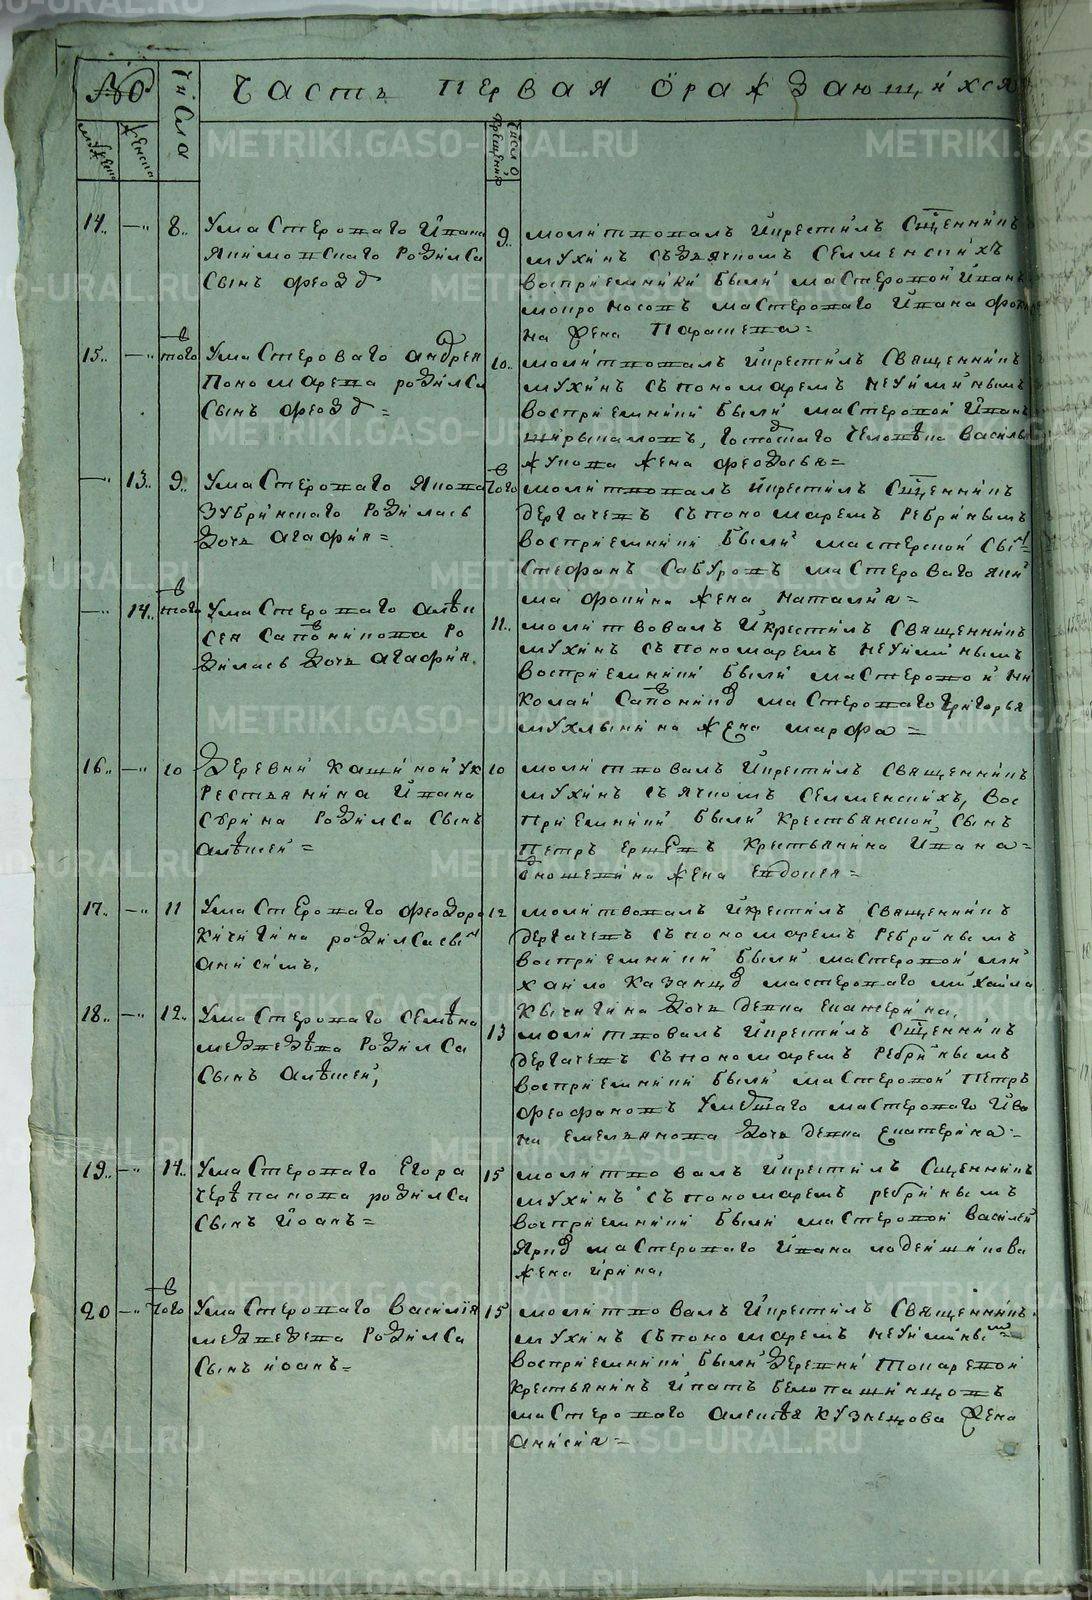 № Числа Часть первая О раждающихся
мужеска женска Число крещения
14.. —.. 8.. У мастероваго Ивана
Якимовскаго родился
сынъ Феодоръ
9.. молитвовалъ и крестилъ Священникъ
Мухинъ съ дьячкомъ Селменскихъ
восприемники были мастеровой Иванъ
мастероваго Ивана
на жена Параскева=
15.. —.. того У мастероваго Андрея
Пономарева родился
сынъ Феодоръ=
10.. молитвовалъ и крестилъ Священникъ
Мухинъ съ пономаремъ Неуиминымъ
восприемники были мастеровой Иванъ
господскаго человѣка Василья
Жукова жена Феодосья=
— 13.. 9.. У мастероваго Якова
Зубринскаго родилась
дочь Агафия=
того молитвовалъ и крестилъ Священникъ
Дергачевъ съ пономаремъ Ребринымъ
восприемники были мастерской сынъ
Стефанъ Сабуровъ мастероваго Яки
ма Фокина жена Наталия=
— 14.. того У мастероваго Алѣк
сея Сапожникова ро
дилась дочь Агафия.
11.. молитвовалъ и крестилъ Священникъ
Мухинъ съ пономаремъ Неуиминымъ
восприемники были мастеровой Ни
колай Сапожников мастероваго Григорья
Мухлынина жена Марфа=
16.. —.. 10 Деревни Кашиной у к
рестьянина Ивана
Сурина родился сынъ
Алѣксей=
10 молитвовалъ и крестилъ Священникъ
Мухинъ съ дьячкомъ Селменскихъ, вос
приемники были крестьянской сынъ
Петръ Ершевъ крестьянина Ивана=
жена Евдокея=
17.. —.. 11 У мастероваго Феодора
Кичигина родился сынъ
Анисимъ.
12 молитвовалъ и крестилъ Священникъ
Дергачевъ съ пономаремъ Ребринымъ
восприемники были мастеровой Ми
хайло Казанцов мастероваго Михайла
Кычигина дочь девка Екатерина.
18.. —.. 12.. У мастероваго Семѣна
Медведѣва родился
сынъ Алѣксей;
13 молитвовалъ и крестилъ Священникъ
Дергачевъ съ пономаремъ Ребринымъ
восприемники были мастеровой Петръ
Феофановъ умершаго мастероваго Ива
на Емельянова дочь девка Екатерина=
19.. —.. 14.. У мастероваго Егора
Черѣпанова родился
сынъ Иоанъ=
15 молитвовалъ и крестилъ Священникъ
Мухинъ съ пономаремъ Ребринымъ
восприемники были мастеровой Василей
мастероваго Ивана Ладейщикова
жена Ирина.
20 —.. того У мастероваго Василия
Медведева родился
сынъ Иоанъ=
15 молитвовалъ и крестилъ Священникъ
Мухинъ съ пономаремъ Неуиминым=
восприемники были деревни Токаревой
крестьянинъ Ипатъ Белопашинцовъ
мастероваго Алексѣя Кузнецова жена
Анисия=
METRIKI.GASO-URAL.RU